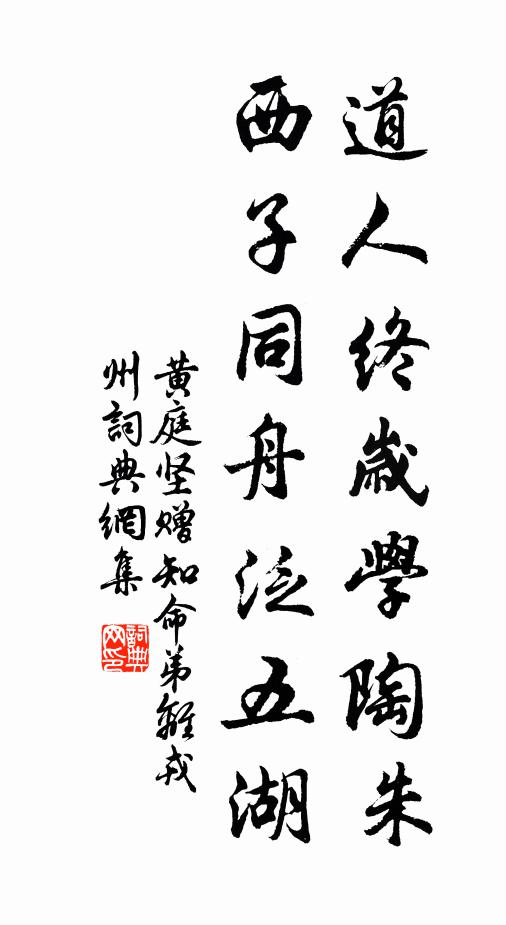 道人終歲學陶朱
西子同舟泛五湖
黃庭坚赠知命弟離戎
州詞典網集
詞典網印